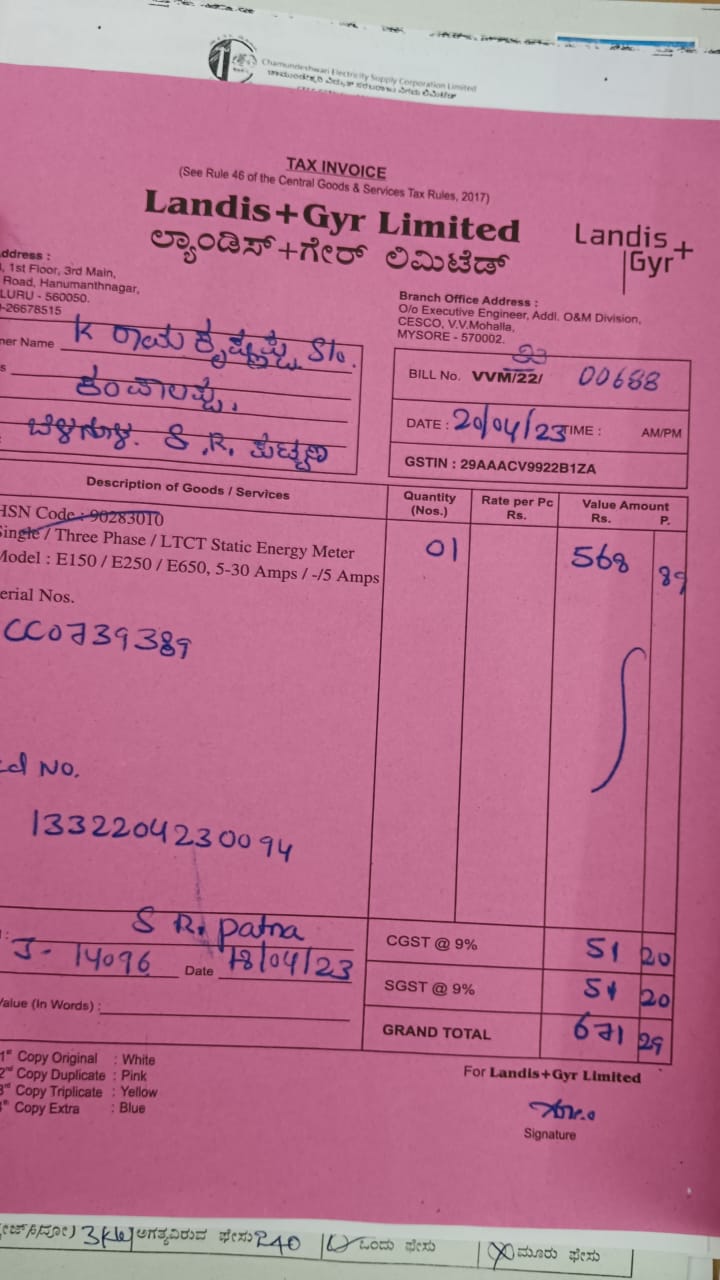 Chamundeshwari Electricity Supply Corporation Limited
ಚಾಮುಂಡೇಶ್ವರಿ ವಿದ್ಯುತ್ ಸರಬರಾಜು ನಿಗಮ ಲಿಮಿಟೆಡ್
TAX INVOICE
(See Rule 46 of the Central Goods & Services Tax Rules, 2017)
Landis+Gyr Limited
ಲ್ಯಾಂಡಿಸ್+ಗೇರ್ ಲಿಮಿಟೆಡ್
Landis+
Gyr
ddress :
, 1st Floor, 3rd Main,
Road, Hanumanthnagar,
LURU - 560050.
-26678515
Branch Office Address :
O/o Executive Engineer, Addl. O&M Division,
CESCO, V.V.Mohalla,
MYSORE - 570002.
ner Name K S/o.
S.R.
BILL No. VVM/22/ 23 00688
DATE : 20/04/23 TIME : AM/PM
GSTIN : 29AAACV9922B1ZA
Description of Goods / Services Quantity (Nos.) Rate per Pc Rs. Value Amount Rs. P.
HSN Code : 90283010
Single / Three Phase / LTCT Static Energy Meter 01 568 89
Model : E150 / E250 / E650, 5-30 Amps / -/5 Amps
erial Nos.
CC0739389
No.
1332204230094
S R. patna
J- 14096 Date 18/04/23
CGST @ 9% 51 20
SGST @ 9% 51 20
alue (In Words) :
GRAND TOTAL 671 29
1st Copy Original : White
2nd Copy Duplicate : Pink
3rd Copy Triplicate : Yellow
Copy Extra : Blue
For Landis+Gyr Limited
Signature
3KW ಅಗತ್ಯವಿರುವ ಫೇಸು 240 ಒಂದು ಫೇಸು ಮೂರು ಫೇಸು